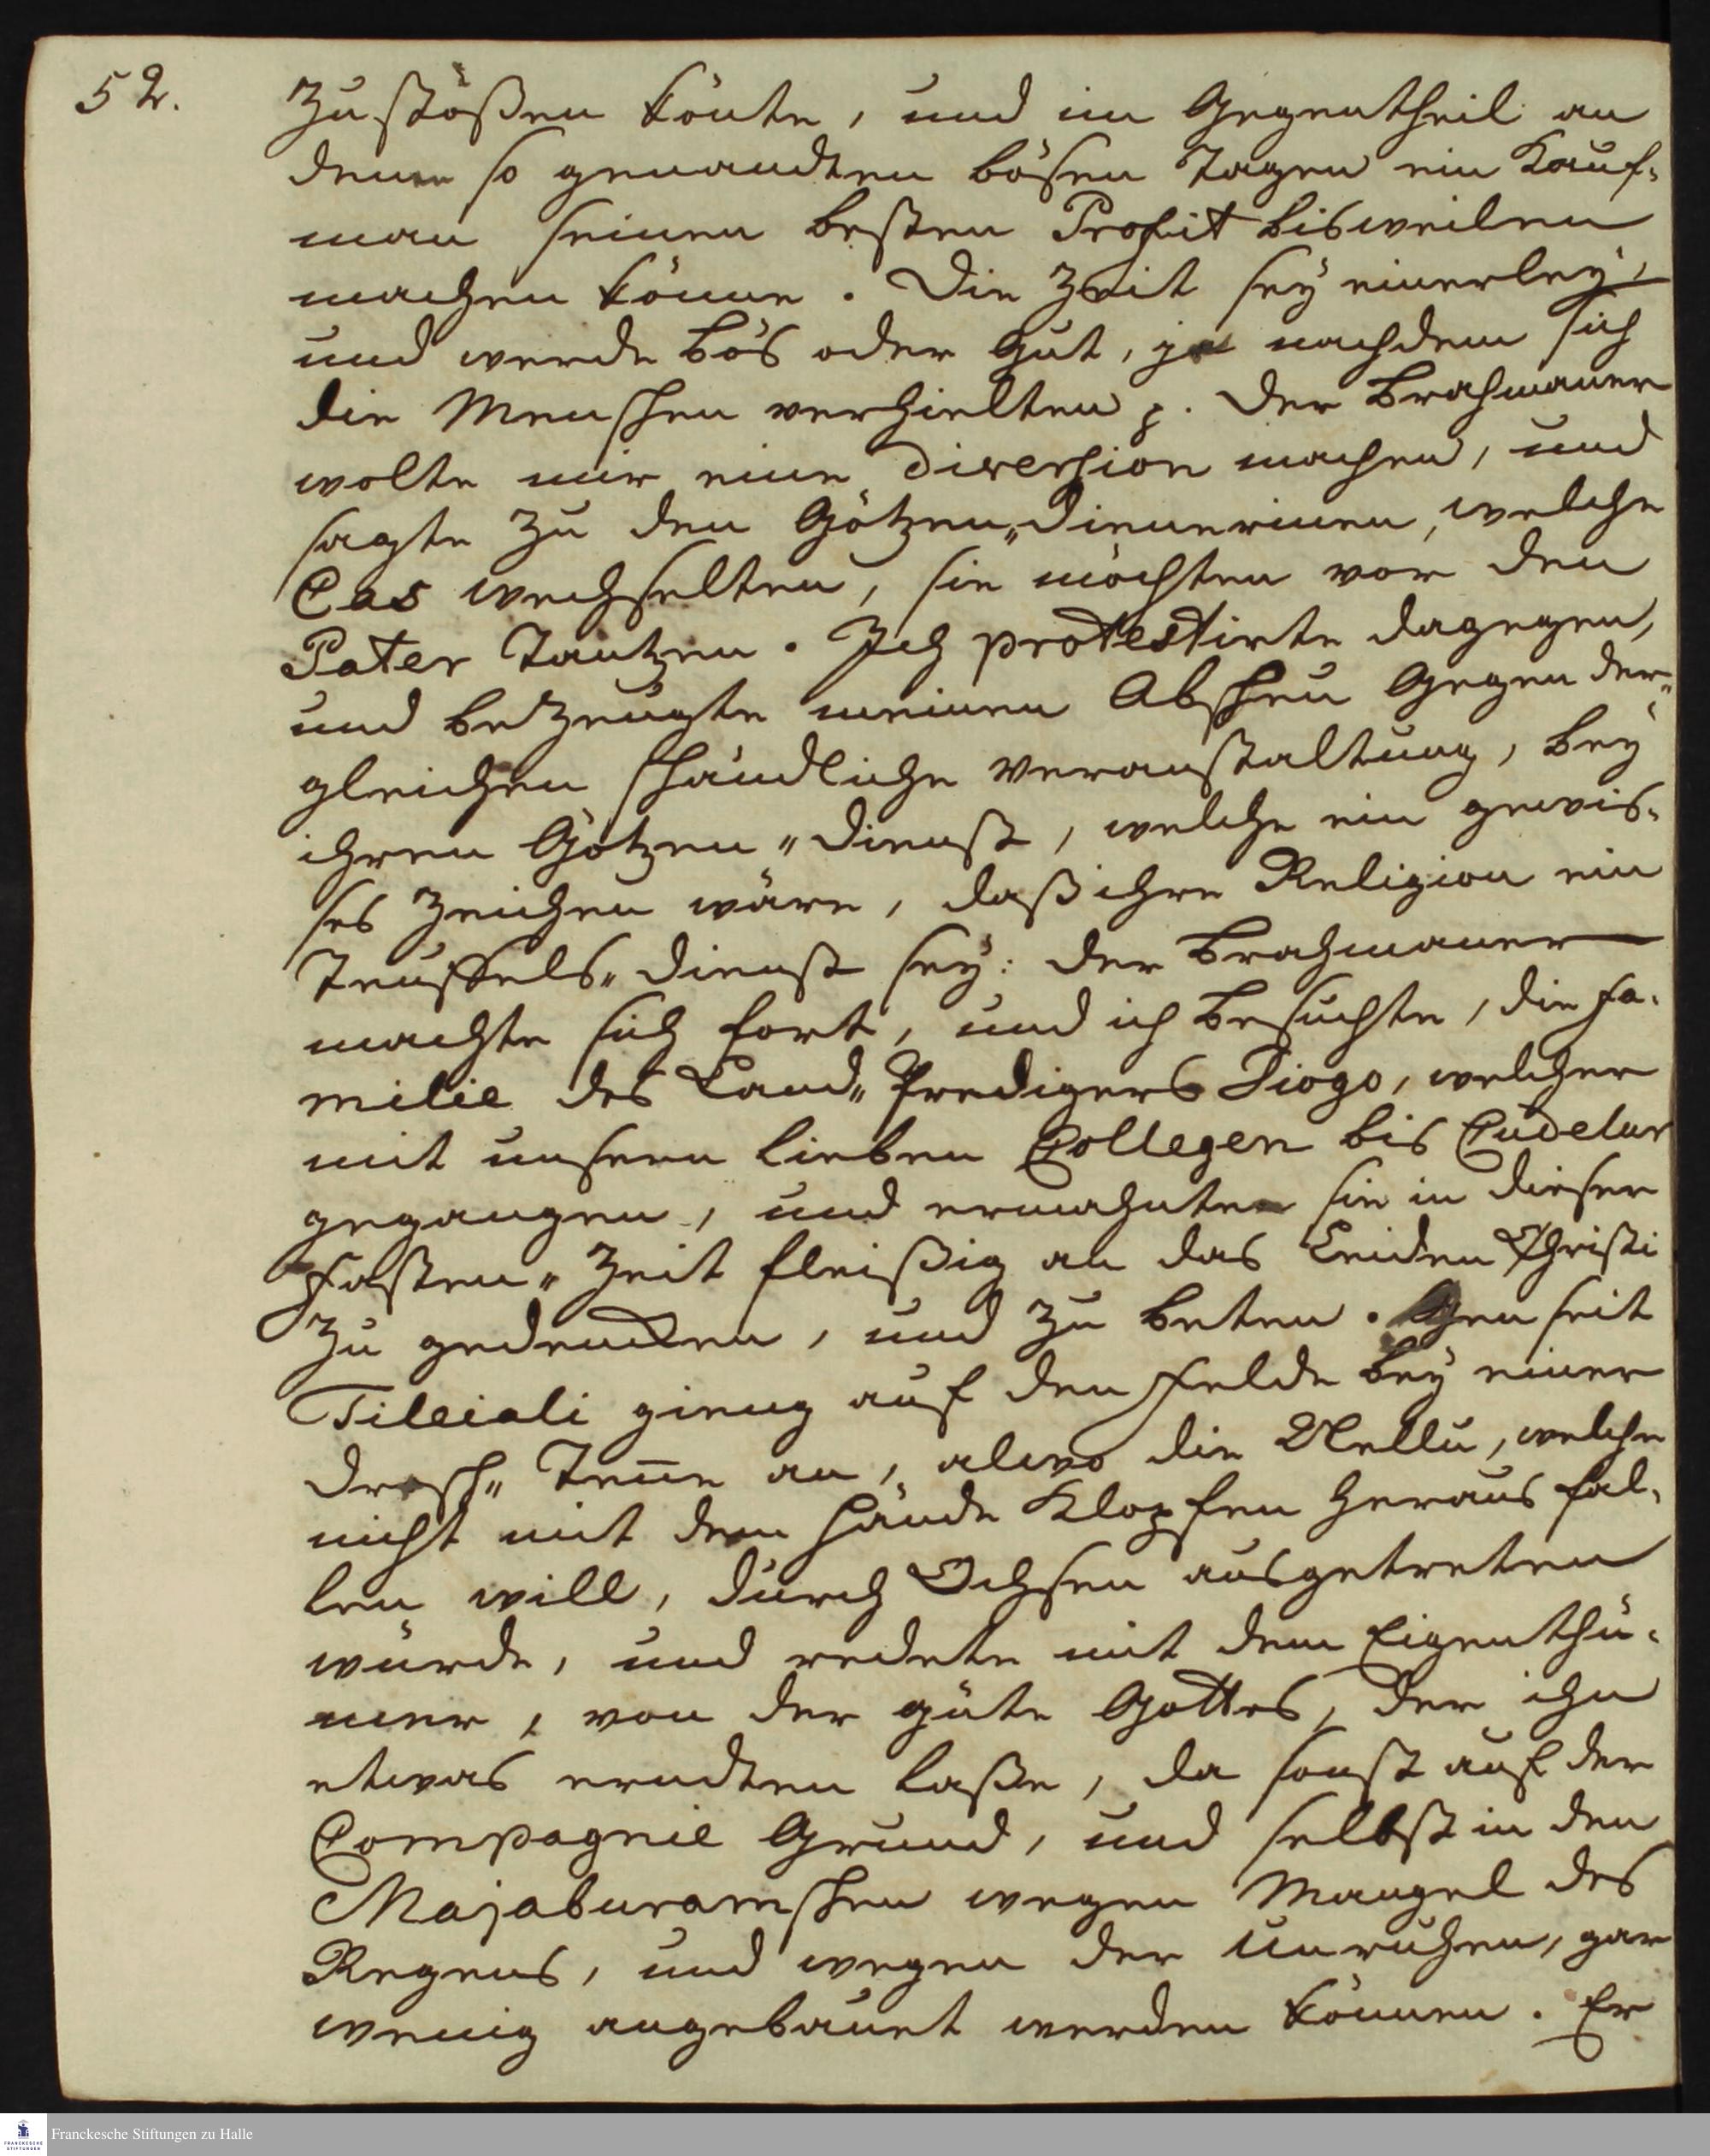 52.
zustößen könte, und im Gegentheil an
denen so genandten bösen Tagen ein Kauf-
man seinen besten Profit bisweilen
machen könne. Die Zeit sey einerley,
und werde bös oder gut, je nachdem sich
die Menschen verhielten p. Der Brahmaner
wolte mir eine diversion machen, und
sagte zu den Götzen„dienerinen, welche
Cas wechselten, sie möchten vor den
Pater Tantzen. Ich protestirte dagegen,
und bezeugte meinen Abscheu gegen der„
gleichen schändliche Veranstaltung, bey
ihren Götzen„dienst, welche ein gewis-
ses Zeichen wäre, daß ihre Religion ein
Teuffels„dienst sey: der Brahmaner
machte sich fort, und ich besuchte, die Fa-
milie des Land„Predigers Diogo, welcher
mit unsern lieben Collegen bis Cudelur
gegangen, und ermahnte sie in dieser
Fasten„Zeit fleißig an das Leiden Christi
zu gedencken, und zu beten. Jenseit
Tilleiali gieng auf den Felde bey einer
Dresch„Tenne an, alwo die Nellu, welche
nicht mit dem Hände Klopfen heraus fal-
len will, durch Ochsen ausgetreten
wurde, und redete mit dem Eigenthü-
mer, von der güte Gottes, der ihn
etwas erndten laße, da sonst auf der
Compagnie Grund, und selbst in den
Majaburamschen wegen Mangel des
Regens, und wegen der Unruhen, gar
wenig angebauet werden können. Er
Franckesche Stiftungen zu Halle